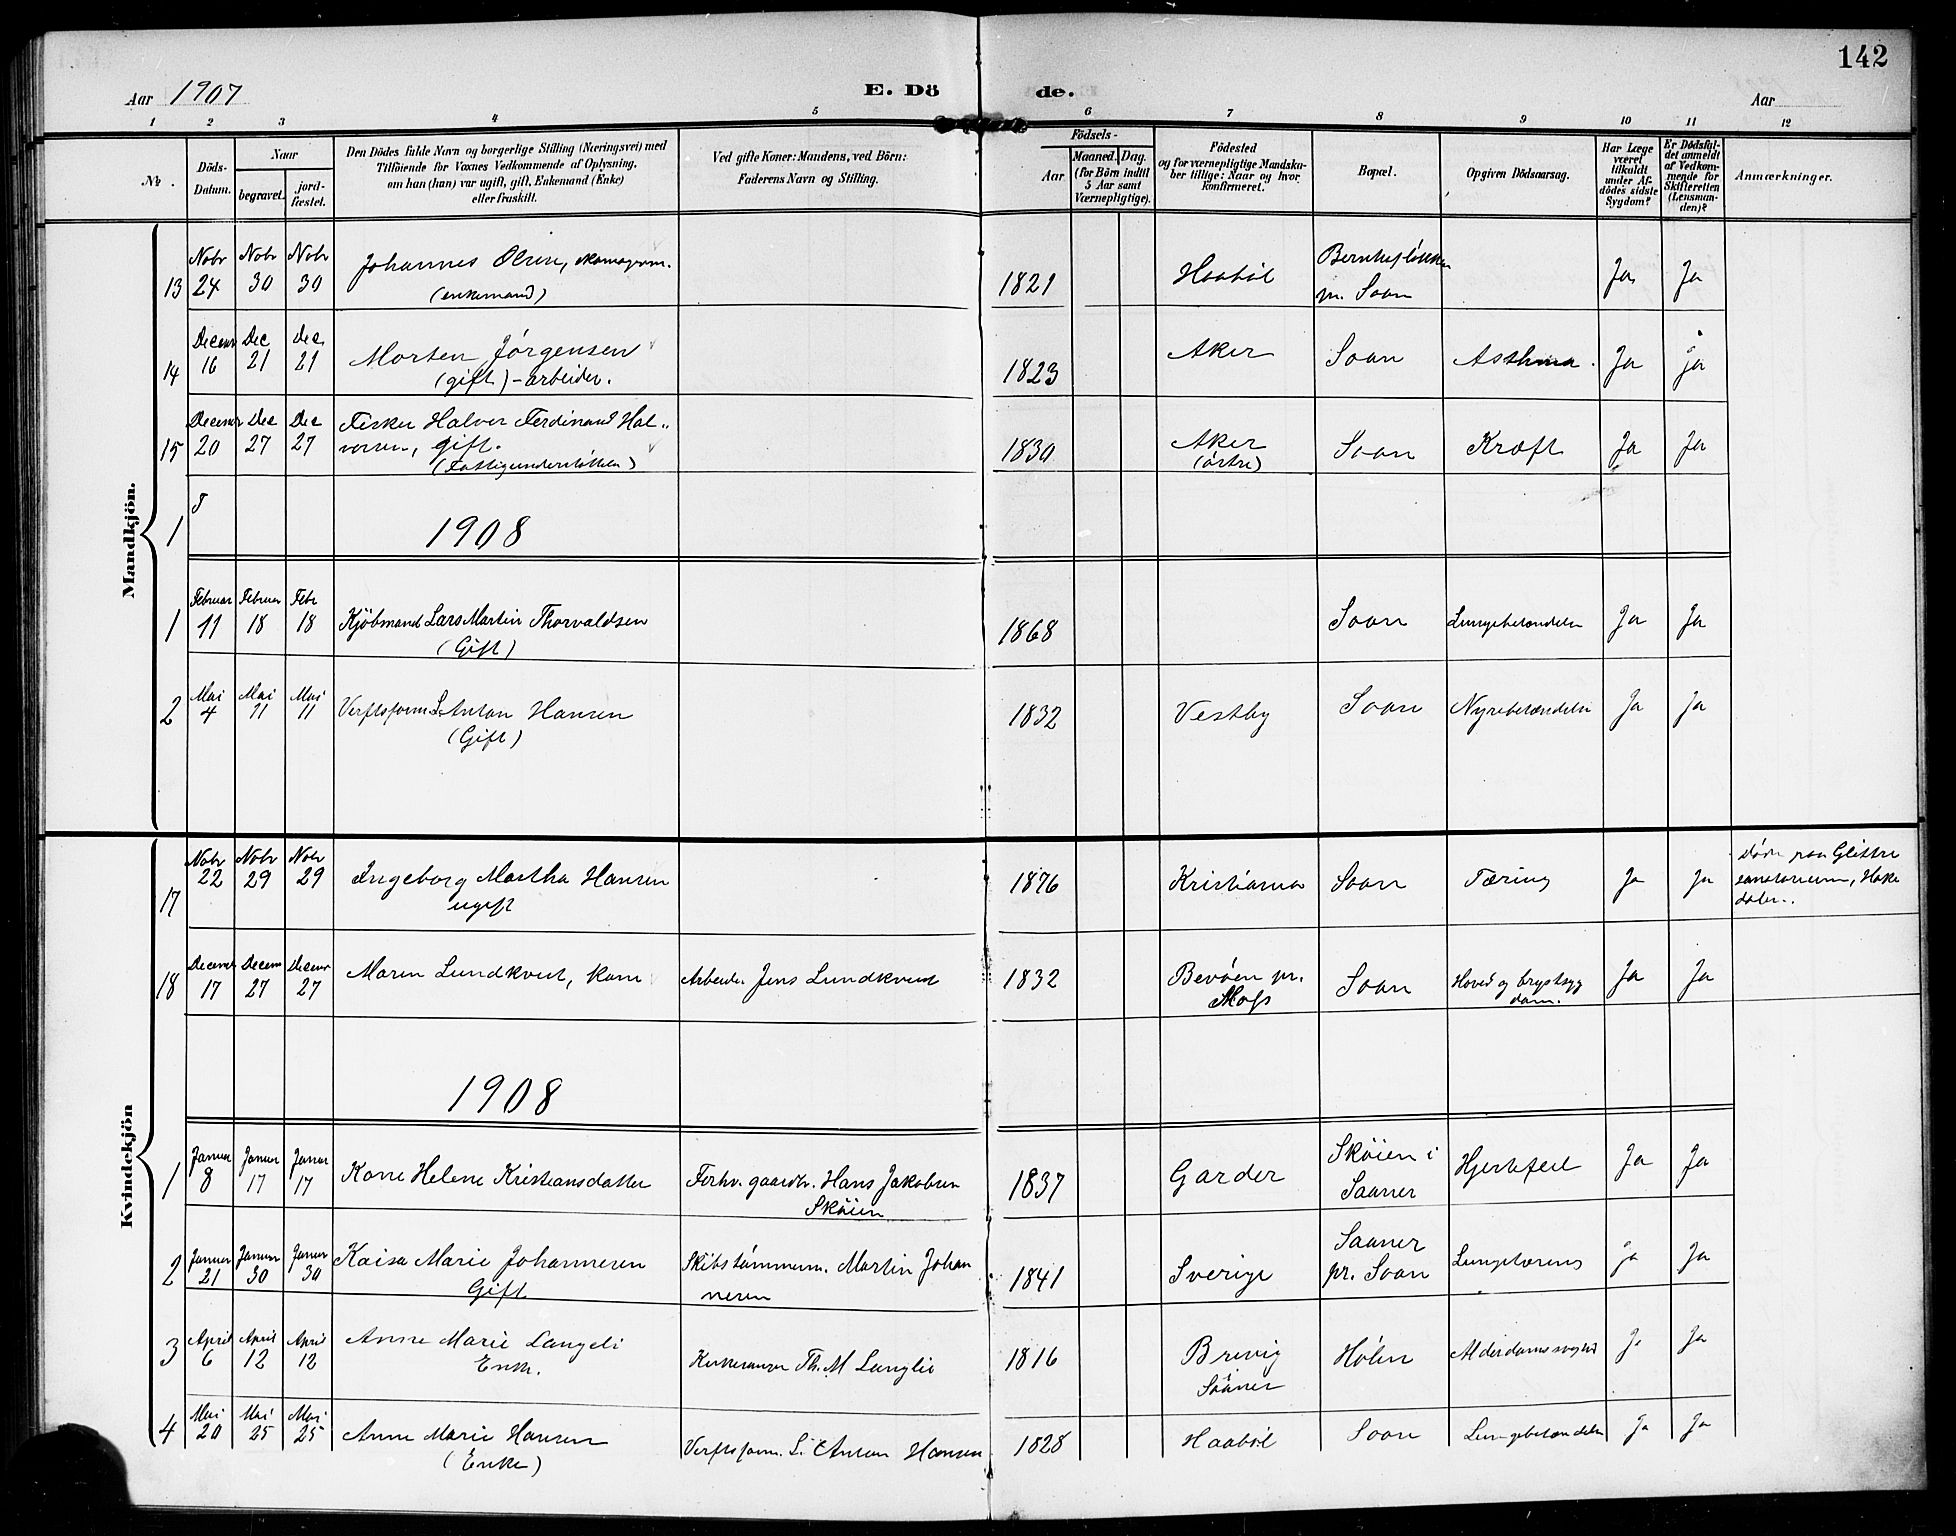 142
Aar 1907
E. Dö
de.
Aar
1 2 3 4 5 6 7 8 9 10 11 12
No.
Döds-
Datum.
Naar
begravet.
jord-
fæstet.
Den Dödes fulde Navn og borgerlige Stilling (Næringsvei) med
Tilföiende for Voxnes Vedkommende af Oplysning,
om han (hun) var ugift, gift, Enkemand (Enke)
eller fraskilt.
Ved gifte Koner: Mandens, ved Börn:
Faderens Navn og Stilling.
Födsels-
Aar
Maaned. Dag.
(for Börn indtil
5 Aar samt
Værnepligtige).
Födested
og for værnepligtige Mandska-
ber tillige: Naar og hvor
konfirmeret.
Bopæl.
Opgiven Dödsaarsag.
Har Læge
været
tilkaldt
under Af-
dödes sidste
Sygdom?
Er Dödsfal-
det anmeldt
af Vedkom-
mende for
Skifteretten
(Lensman-
den)?
Anmærkninger.
Mandkjön.
13 Nobr 24 Nobr 30 Nobr 30 Johannes Olsen, skomagerm. 1821 Haabøl Ja Ja
(enkemand) pr. Soon
14 Decemr 16 Dec 21 Dec. 21 Morten Jørgensen 1823 Aker Soon Asthma. Ja Ja
(gift) - arbeider.
15 Decemr 20 Dec 27 Dec 27 Fisker Halvor Ferdinand Hal-
vorsen, gift. 1830 Aker Soon Kræft Ja Ja
(Fattigunderstøttet) (østre)
1 8
1908
1 Februar 11 Februar 18 Febr 18 Kjøbmand Lars Martin Thorvaldsen 1868 Soon Lungebetændelse Ja Ja
(Gift)
2 Mai 4 Mai 11 Mai 11 Verftsform. L. Anton Hansen 1832 Vestby Soon Nyrebetændelse Ja Ja
(Gift)
Kvindekjön
17 Nobr 22 Nobr 29 Nobr 29 Ingeborg Martha Hansen 1876 Kristiania Soon Tæring Ja Ja døde paa Glittre
ugift sanatorium, Hake
dalen.
18 Decemr 17 Decem 27 Decemr 27 Maren Lundkvist, kone Arbeider Jens Lundkvist 1832 Bevøen pr. Soon Hoved og brystsyg Ja Ja
Moss dom.
1908
1 Januar 8 Januar 17 Januar 17 Kone Helene Kristiansdatter Forhv. gaardbr. Hans Jakobsen 1837 Garder Skøien i Hjertefeil Ja Ja
Skøien Saaner
2 Januar 21 Januar 30 Januar 30 Kaisa Marie Johannesen Skibstømmerm. Martin Johan 1841 Sverige Saaner Lungetæring Ja Ja
Gift nesen pr. Soon
3 April 6 April 12 April 12 Anne Marie Langeli Th. M Langlie 1816 Brevig Hølen Alderdomssvaghed Ja Ja
Enke. i Saaner
4 Mai 20 Mai 25 Mai 25 Anne Marie Hansen Verftsform. L. Anton Hansen 1828 Haabøl Soon Lungebetændelse Ja Ja
(Enke)